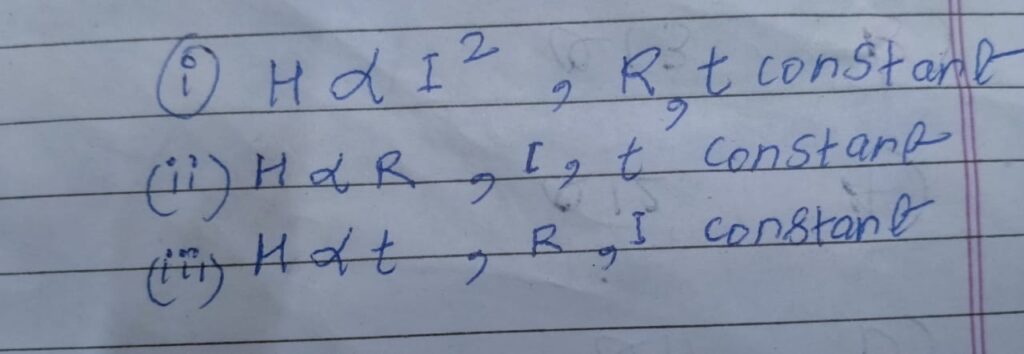 (i) H ∝ I², R, t constant
(ii) H ∝ R, I, t constant
(iii) H ∝ t, R, I constant